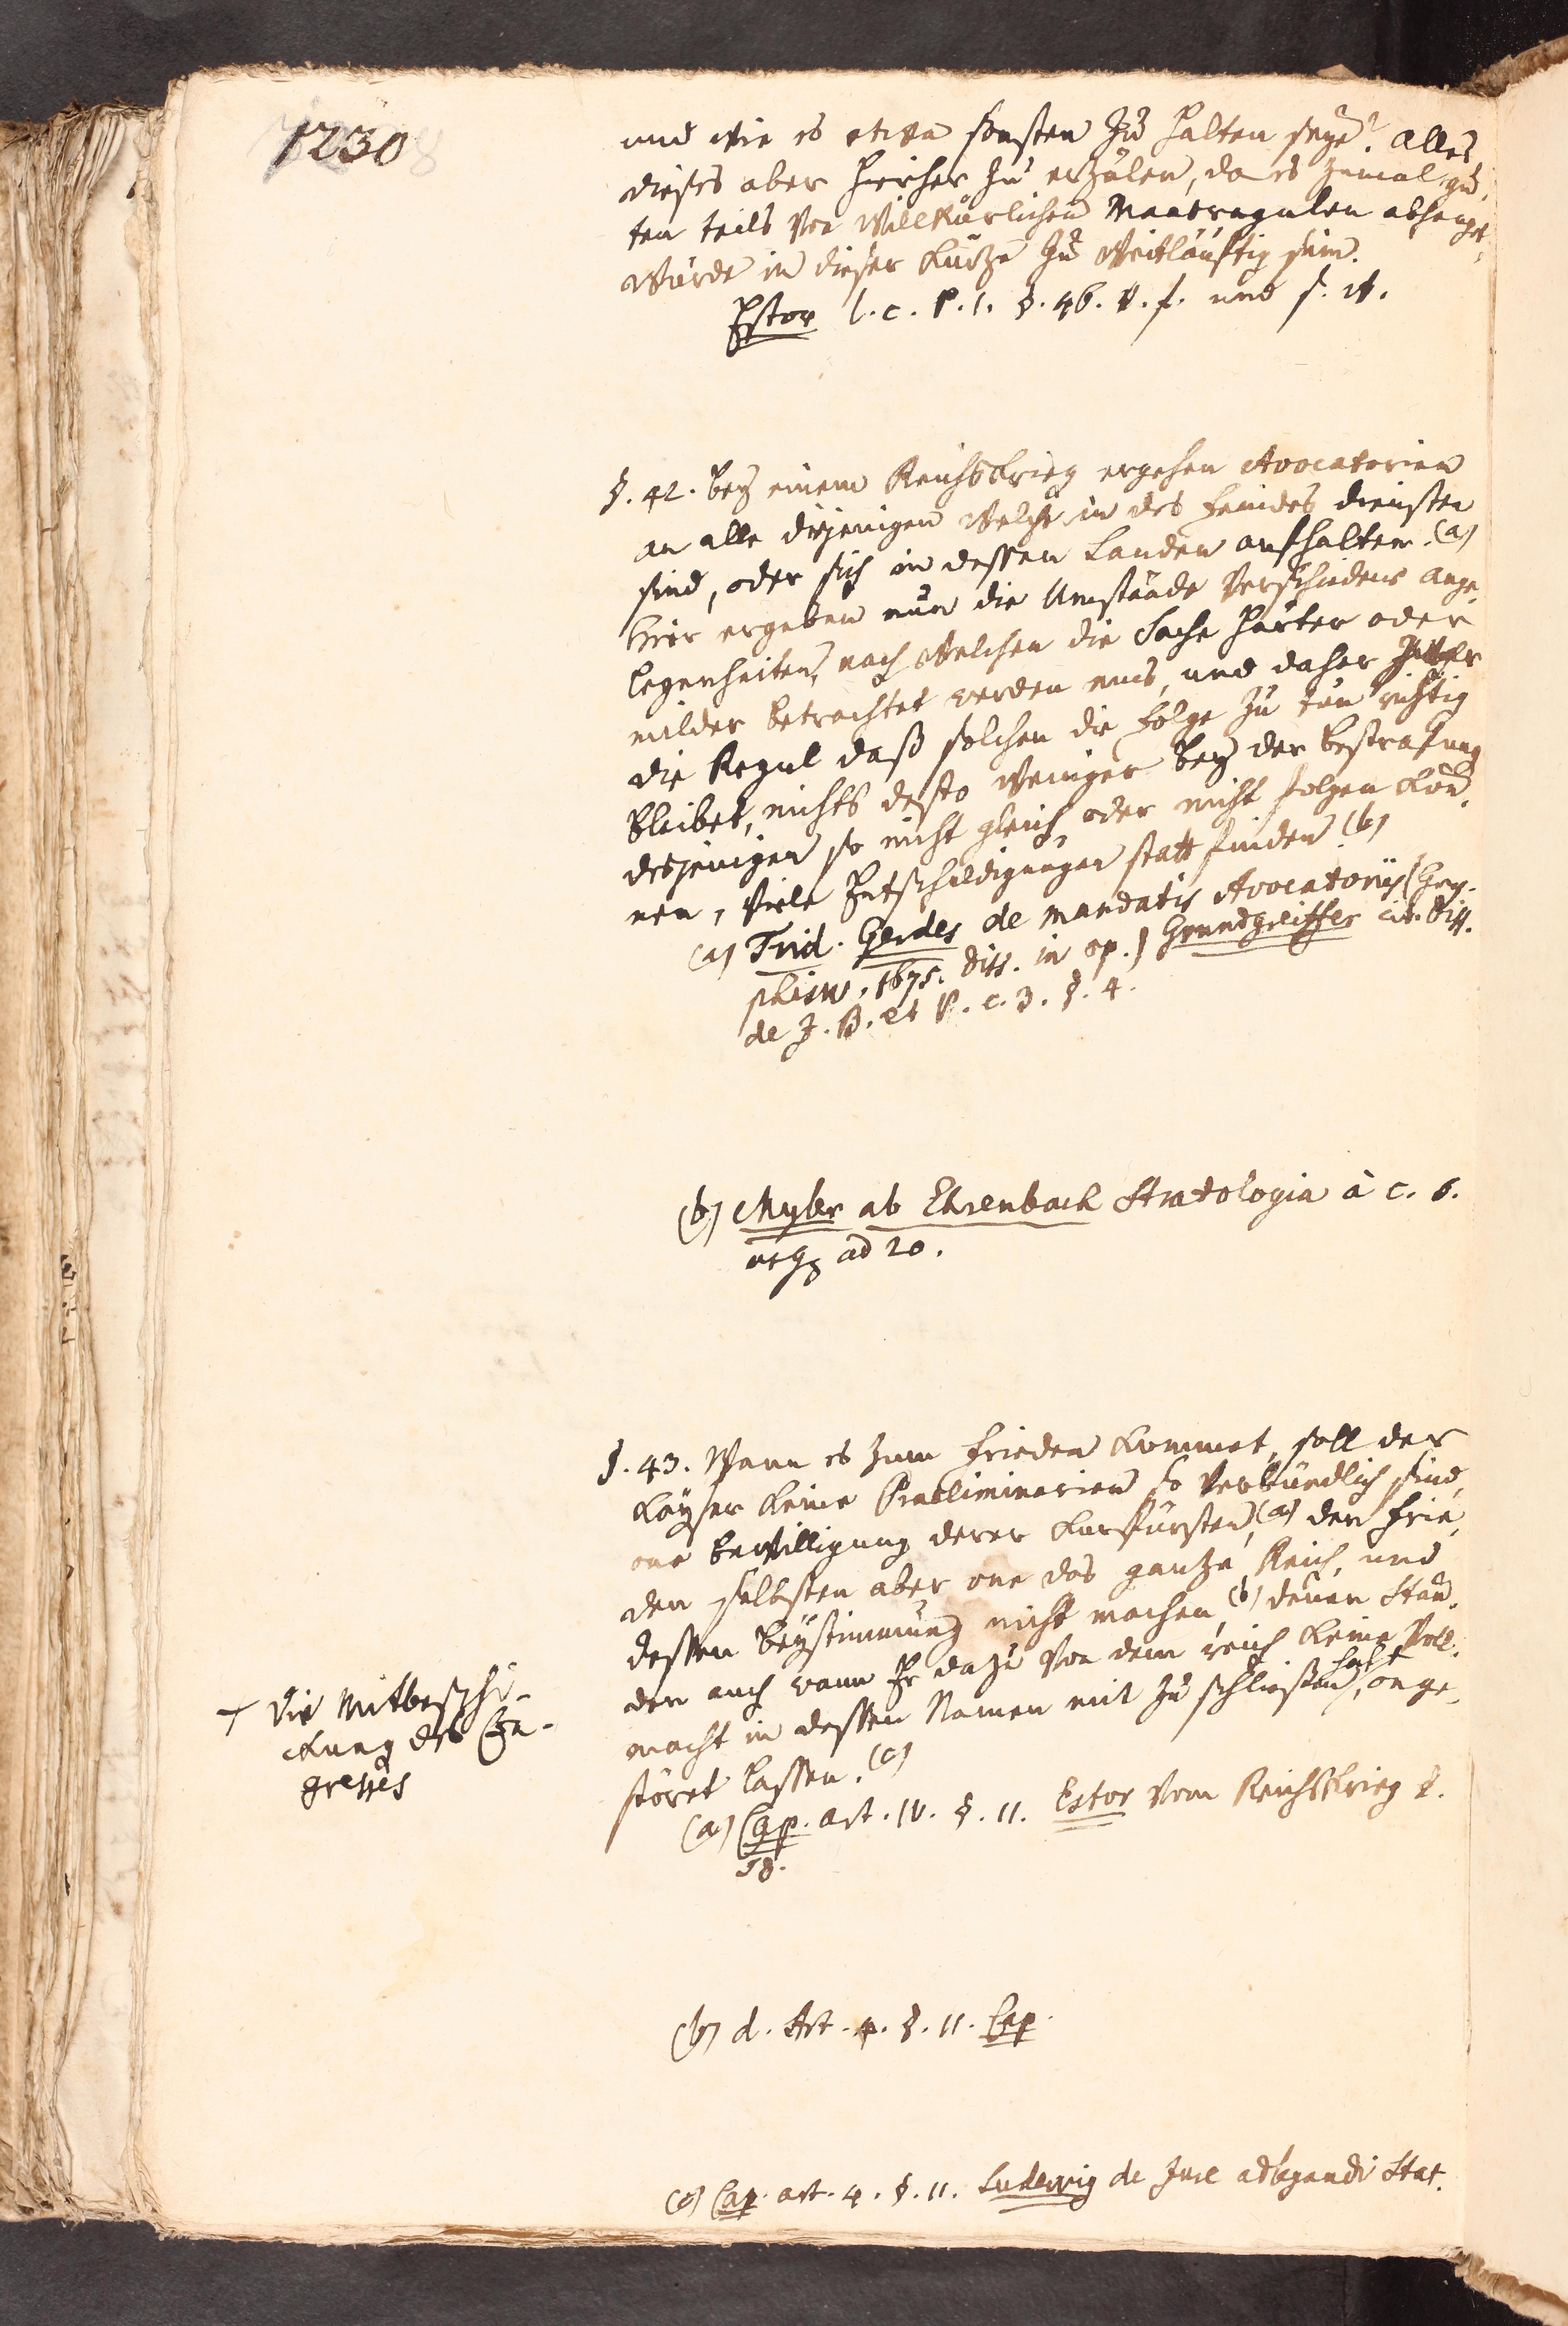 1230
und wie es etwa sonsten zu halten seye? Alles
dieses aber hierher zu erzälen, da es zumal gu-
ten teils von willkürlichen Maasregulen abhanget,
würde in dieser Kürze zu weitläuftig sein.
Estor l. c. P. 1. §. 46. u. f. und f. it.
§. 42. Bey einem Reichskrieg ergehen Avocatorien
an alle diejenigen welche in des Feindes diensten
sind, oder sich in dessen Landen aufhalten. (a)
Hier ergeben nun die Umstände verschiedene Ange-
legenheiten, nach welchen die Sache härter oder
milder betrachtet werden mus, und daher
die Regul daß solchen die Folge zu tun richtig
bleibet, nichts desto weniger bey der Bestrafung
desjenigen so nicht gleich oder nicht folgen kön-
nen, viele Entschuldigungen statt finden. (b)
(a) Frid. Gerdes de mandatis Avocatoriis (Gry-
phisw. 1675. Diss. in op.) Grundgreiffer cit. Diss.
de J. B. et P. c. 3. §. 4.
(b) Myler ab Ehrenbach Stratologia à c. 6.
usq ad 20.
§. 43. Wann es zum Frieden kommet, soll der
Kayser keine Praeliminarien so verbündlich sind,
one Bewilligung derer Kurfürsten, (a) den Frie-
den selbsten aber one das ganze Reich, und
dessen Beystimmung nicht machen, (b) denen Stän-
den auch wann Er dazu von dem reich keine Voll-
macht in dessen Namen mit zu schliessen hat, onge-
störet lassen. (c)
+ die Mitbeschi-
ckung des Con-
gresses
(a) Cap. art. IV. §. 11. Estor vom Reichskrieg §.
58.
(b) d. Art. 4. §. 11. Cap.
(c) Cap. art. 4. §. 11. Ludewig de Jure adlegandi Stat.